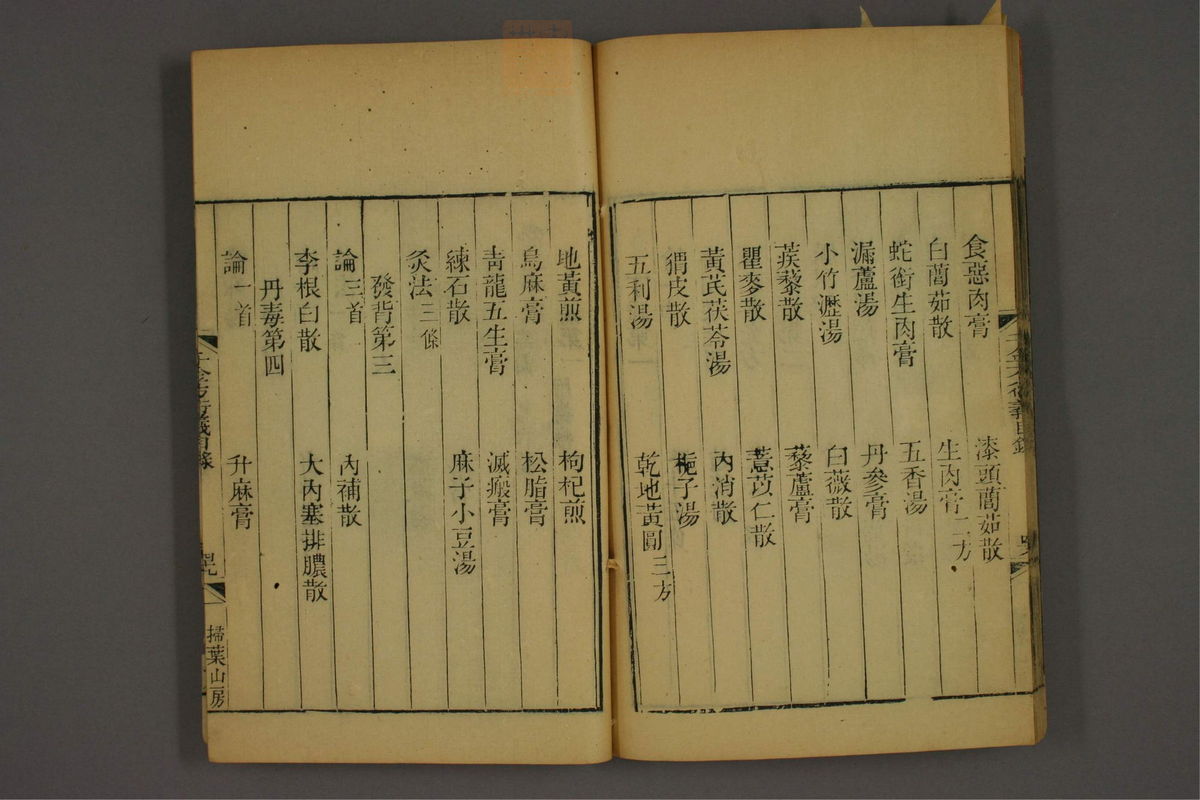 食惡肉膏 漆頭䕡茹散
白䕡茹散 生肉膏二方
蛇銜生肉膏 五香湯
漏蘆湯 丹參膏
小竹瀝湯 白薇散
蒺藜散 藜蘆膏
瞿麥散 薏苡仁散
黃芪茯苓湯 內消散
猬皮散 梔子湯
五利湯 乾地黃圓三方
地黃煎 枸杞煎
烏麻膏 松脂膏
青龍五生膏 滅瘢膏
練石散 麻子小豆湯
灸法三條
發背第三
論三首 內補散
李根白散 大內塞排膿散
丹毒第四
論一首 升麻膏
千金方衍義目錄
掃葉山房